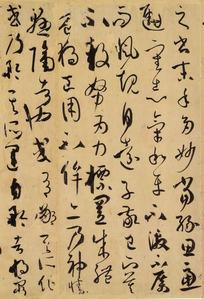 之書末年多妙當緣思慮通
審志氣和平不激不厲
而風規自遠子敬已下莫
不鼓努為力標置成體
豈獨工用不侔亦乃神情
懸隔者也或有鄙其所作
或乃矜其所運自矜者將窮